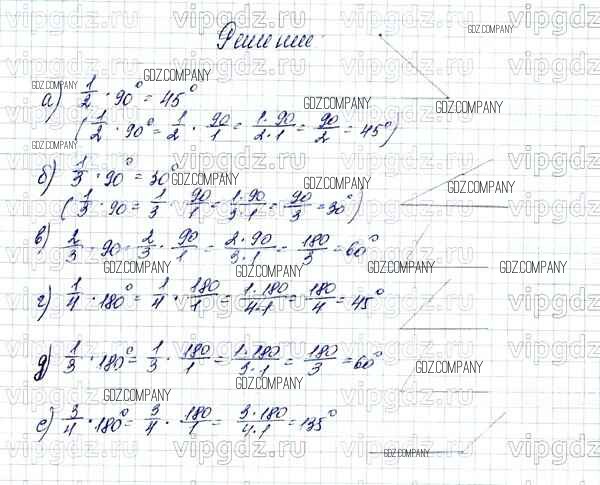 Решение
а) 1/2 · 90° = 45°
(1/2 · 90° = 1/2 · 90/1 = 1·90/2·1 = 90/2 = 45°)
б) 1/3 · 90° = 30°
(1/3 · 90 = 1/3 · 90/1 = 1·90/3·1 = 90/3 = 30°)
в) 2/3 · 90 = 2/3 · 90/1 = 2·90/3·1 = 180/3 = 60°
г) 1/4 · 180° = 1/4 · 180/1 = 1·180/4·1 = 180/4 = 45°
д) 1/3 · 180° = 1/3 · 180/1 = 1·180/3·1 = 180/3 = 60°
е) 3/4 · 180° = 3/4 · 180/1 = 3·180/4·1 = 135°
vipgdz.ru
GDZ.COMPANY